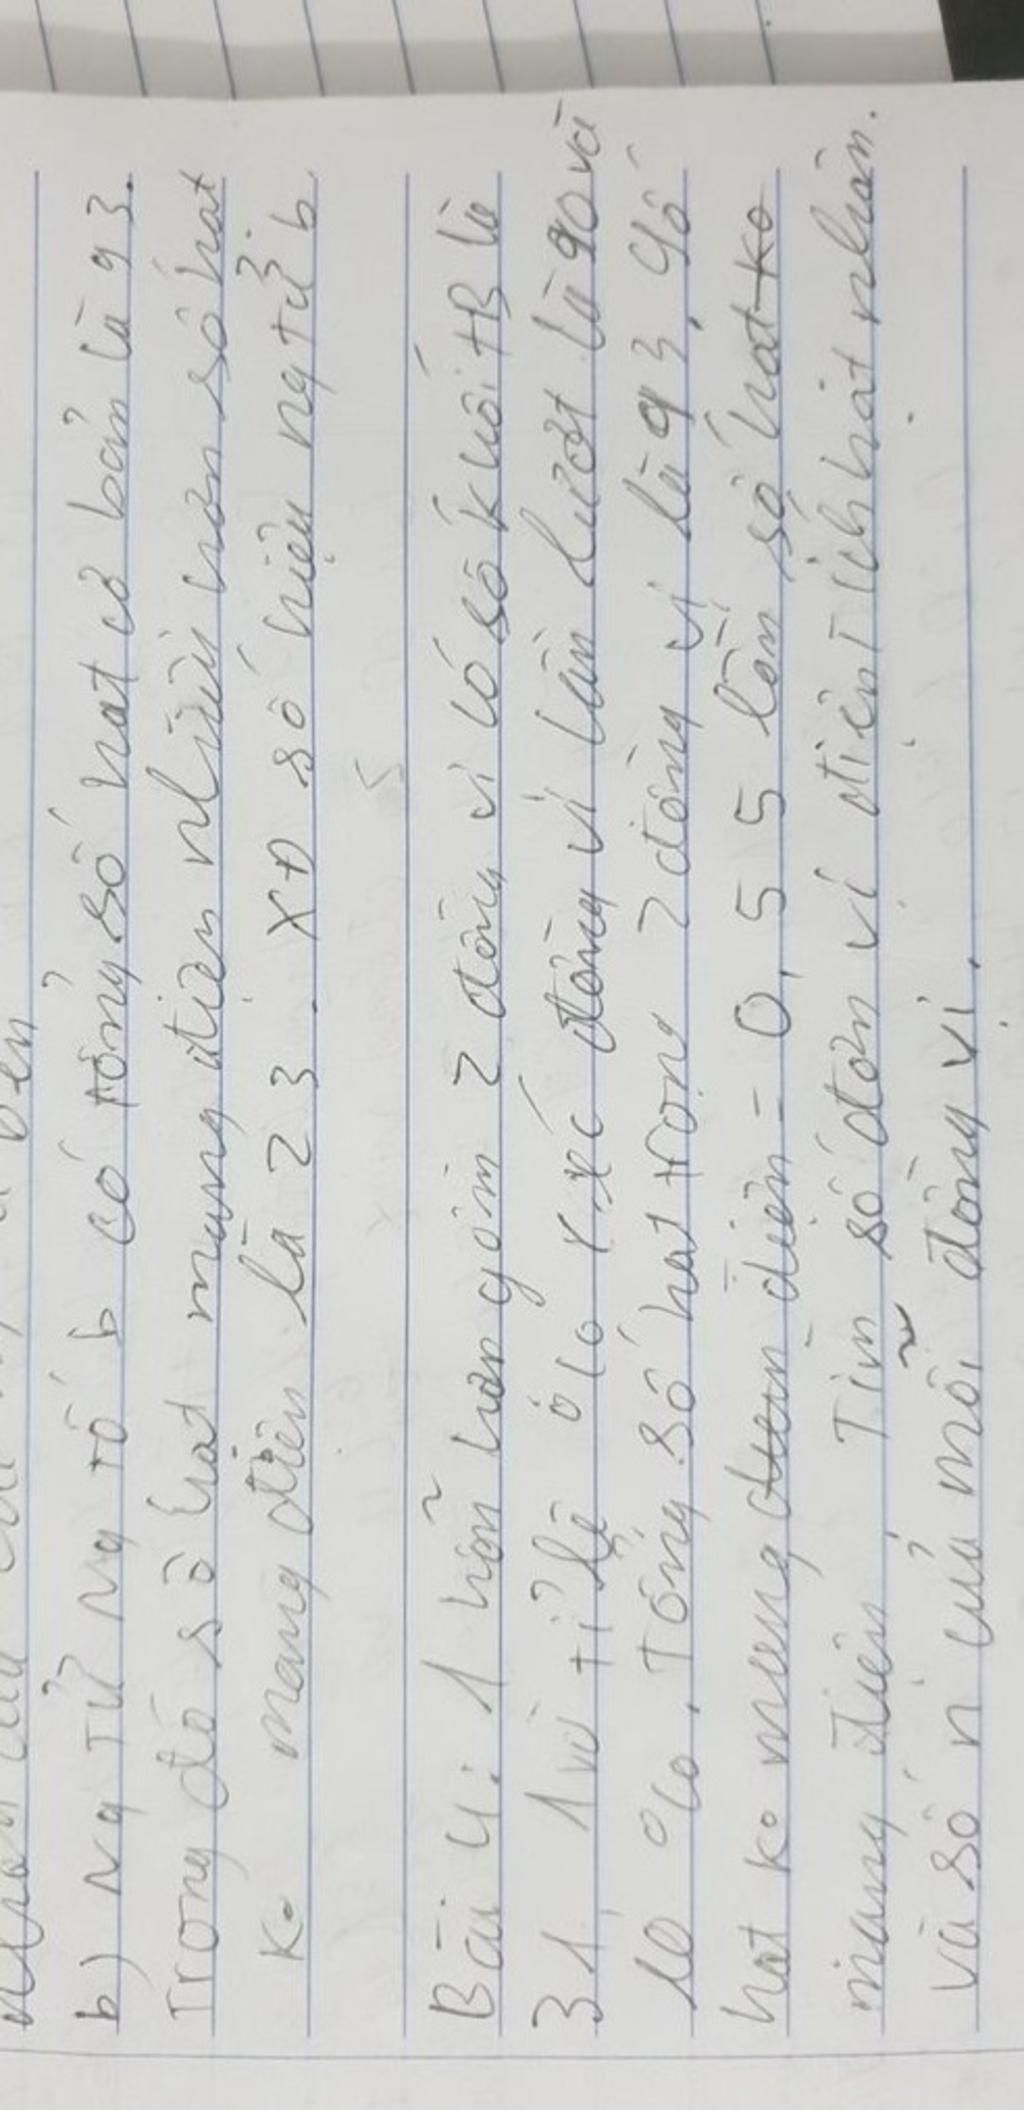 b) Ng Tử Ng Tố b có tổng số hạt cơ bản là 93.
Trong đó số hạt mang điện nhiều hơn số hạt
ko mang điện là 23. XĐ số hiệu ng tử b
Bài 4: 1 hỗn hợp gồm 2 đồng vị có số khối TB là
31,1 với tỉ lệ % đồng vị lần lượt là 90 và
10 %. Tổng số hạt trong 2 đồng vị là 93, số
hạt ko mang điện = 0,55 lần số hạt
mang điện. Tìm số đơn vị điện tích hạt nhân
và số n của mỗi đồng vị.